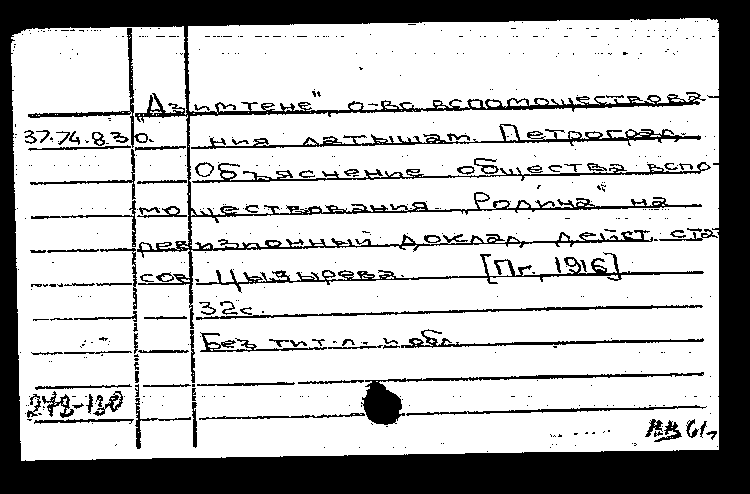 „Дзимтене", о-во вспомоществова-
37.74.830. ния латышам. Петроград.
Объяснение общества вспо-
моществования „Родина" на
ревизионный доклад дейст. стат
сов. Цызырева. [Пг., 1916]
32с.
Без тит. л. и обл.
278-130
61г.